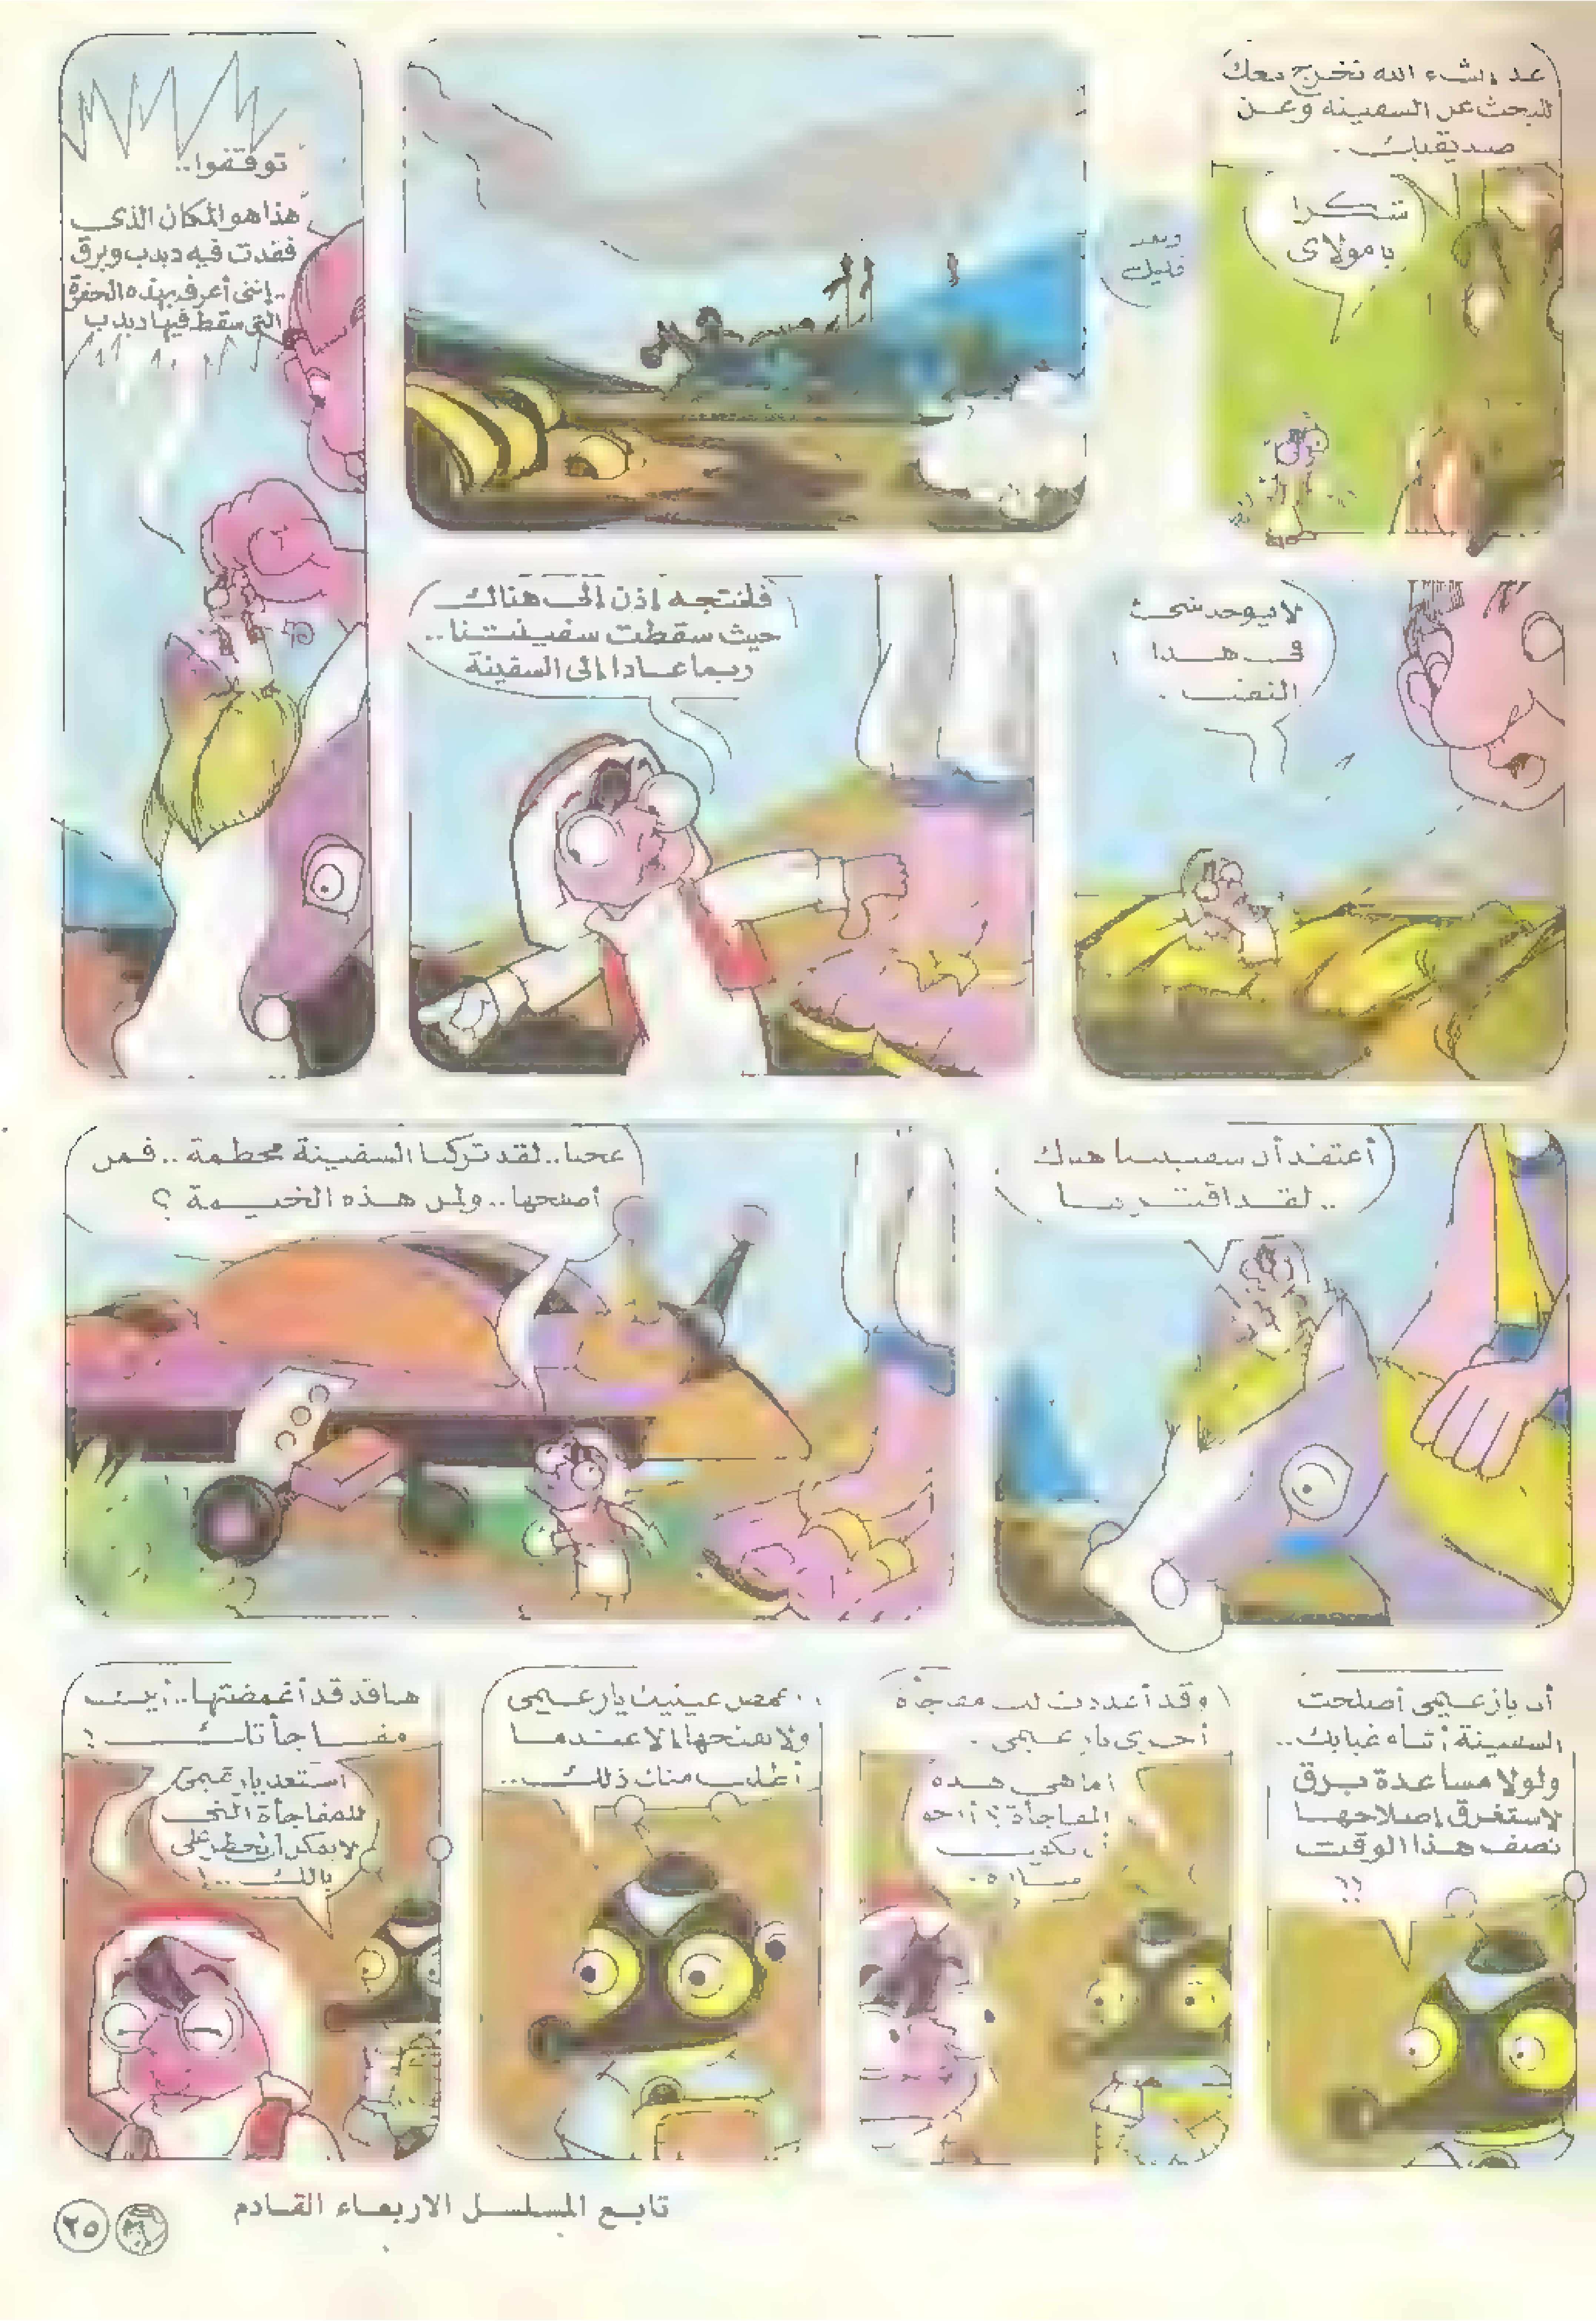 غدا إن شاء الله نخرج معك
للبحث عن السفينة وعن
صديقيك.
شكرا
يا مولاى
وبعد
قليل
توقفوا..
هذا هو المكان الذي
فقدت فيه دبدب وبرق
..إننى أعرف بهذه الحفرة
التى سقط فيها دبدب
لا يوجد شئ
فى هذا
فلنتجه إذن إلى هناك
حيث سقطت سفينتنا..
ربما عادا إلى السفينة
أعتقد أن سفينتنا هناك
.. لقد اقتربنا
عجبا.. لقد تركنا السفينة محطمة.. فمن
أصلحها.. ولمن هذه الخيمة ؟
أنا يا زعيمى أصلحت
السفينة أثناء غيابك..
ولولا مساعدة برق
لاستغرق إصلاحها
نصف هذا الوقت
!!
وقد أعددت لك مفاجأة
أخرى يا زعيمى.
ما هى هذه
المفاجأة ؟ أرجو
أن تكون
سارة.
اغمض عينيك يا زعيمى
ولا تفتحها إلا عندما
أطلب منك ذلك..
ها قد قد أغمضتها.. أين
مفاجأتك !
استعد يا زعيمى
للمفاجأة التى
لا يمكن أن تخطر على
بالك ..!
تابع المسلسل الاربعاء القادم
٢٥